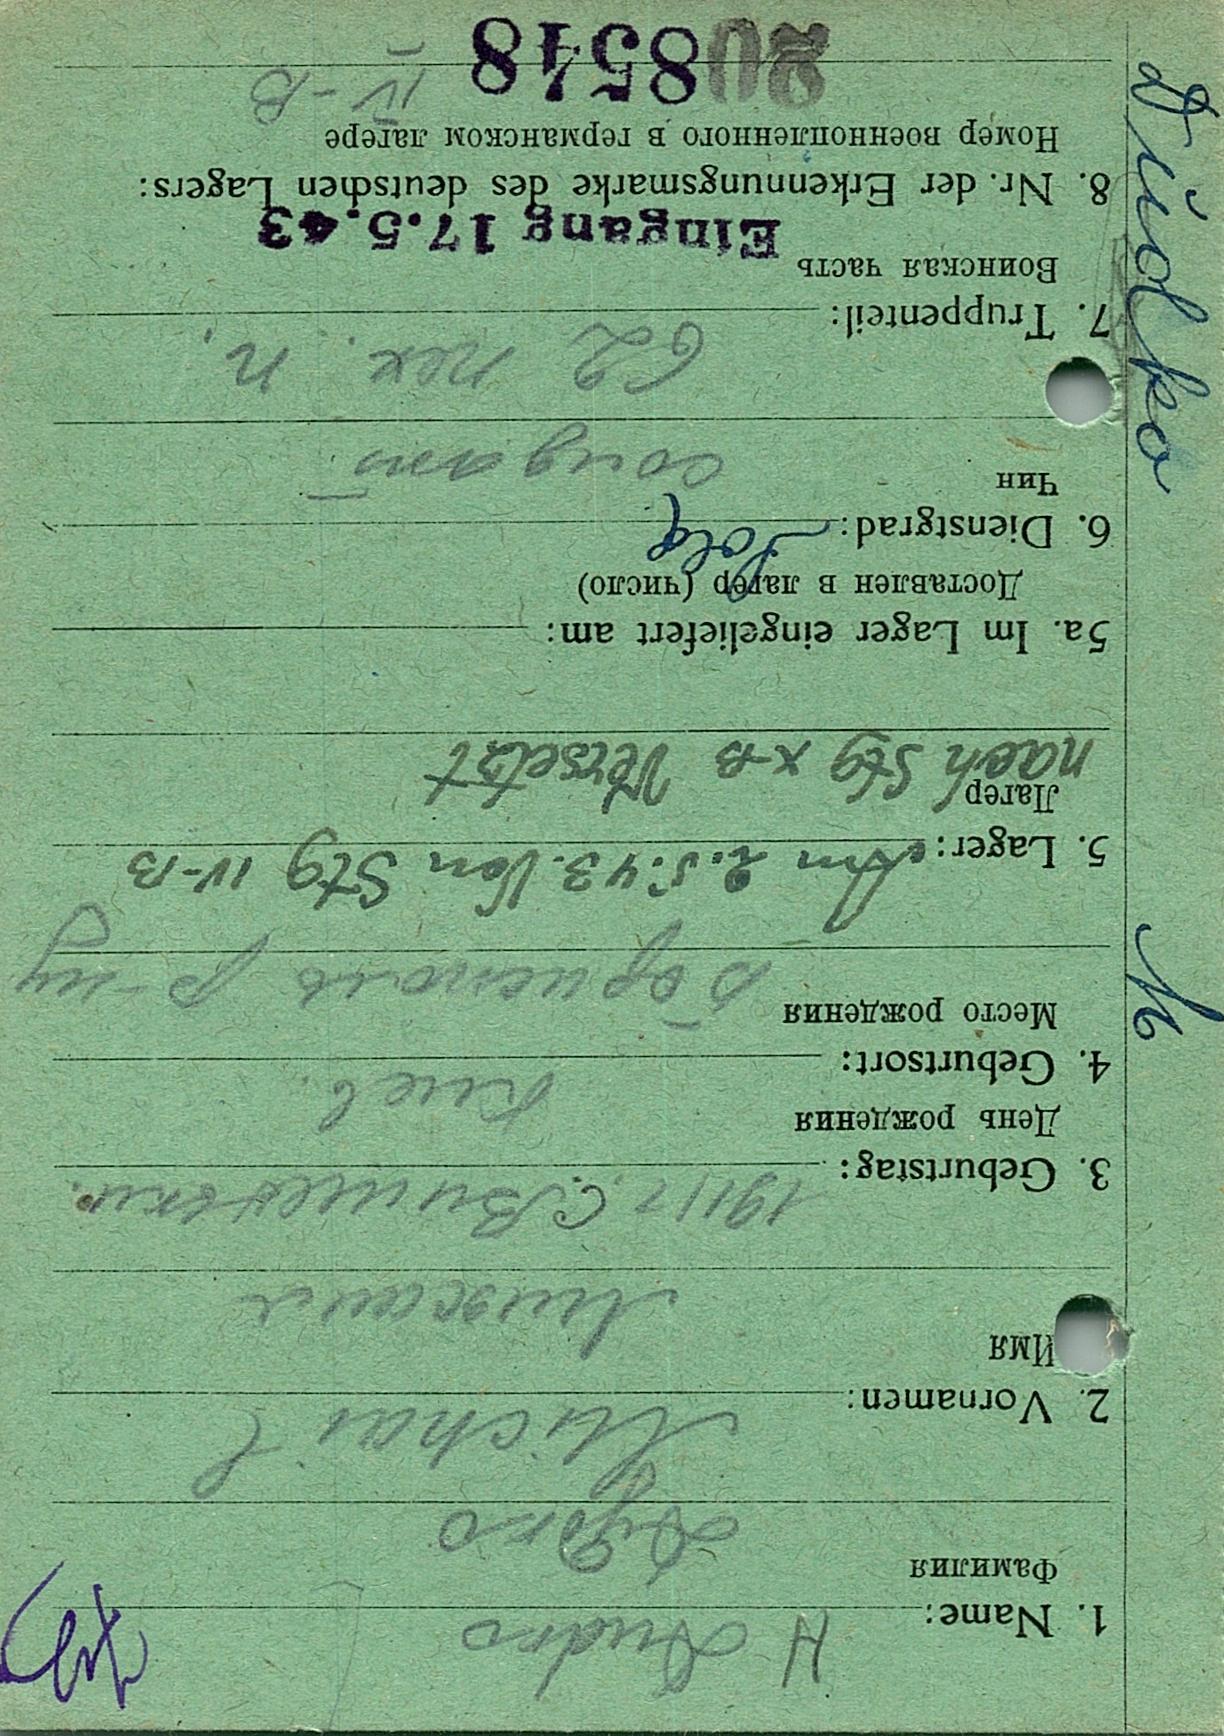 1. Name: H Dudko
Фамилия
Дудко
2. Vornamen: Michail
Имя
Михаил
3. Geburtstag: 1911 г. с.
День рождения
Киев.
4. Geburtsort:
Место рождения
Бориспол р-ну
5. Lager: Am 2.5.43. Von Stg IV-B
Лагер
nach Stg X-B Versetzt
5a. Im Lager eingeliefert am:
Доставлен в лагер (число)
6. Dienstgrad: Sold
Чин
солдат
62 пех. п.
7. Truppenteil:
Воинская часть
Eingang 17.5.43
8. Nr. der Erkennungsmarke des deutschen Lagers:
Номер военнопленного в германском лагере
208548 IV-B
Dudko M